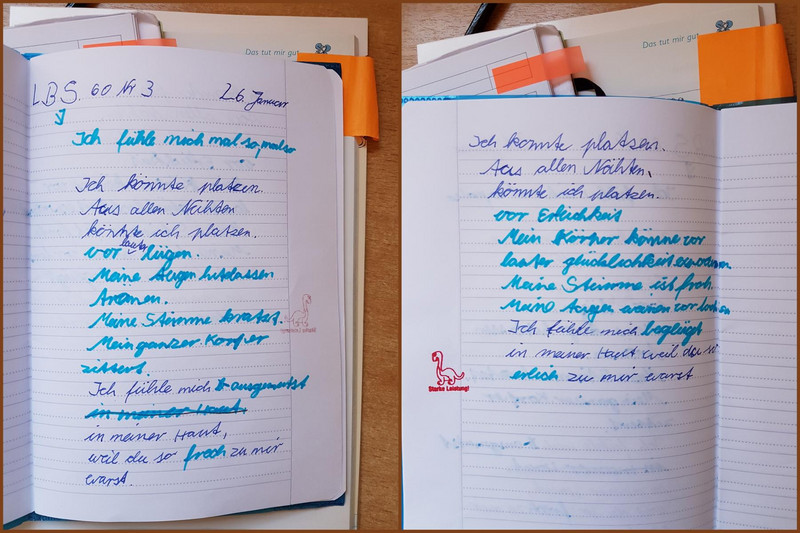 Das tut mir gut
LBS. 60 Nr 3
26. Januar
Ich fühle mich mal so, mal so
Ich könnte platzen.
Aus allen Nähten
könnte ich platzen.
vor lauter Lügen.
Meine Augen
Meine Stimme kratzt.
Mein ganzer Körper
zittert.
Ich fühle mich ausgenutzt
in meiner Haut,
in meiner Haut,
weil du so frech zu mir
warst.
Das tut mir gut
Ich konnte platzen.
Aus allen Nähten,
könnte ich platzen.
vor Erlichkeit
Mein Körper könne vor
lauter glücklichkeit
Meine Stimme ist froh.
Meine Augen vor
Ich fühle mich beglügt
in meiner Haut weil du so
erlich zu mir warst
Starke Leistung!